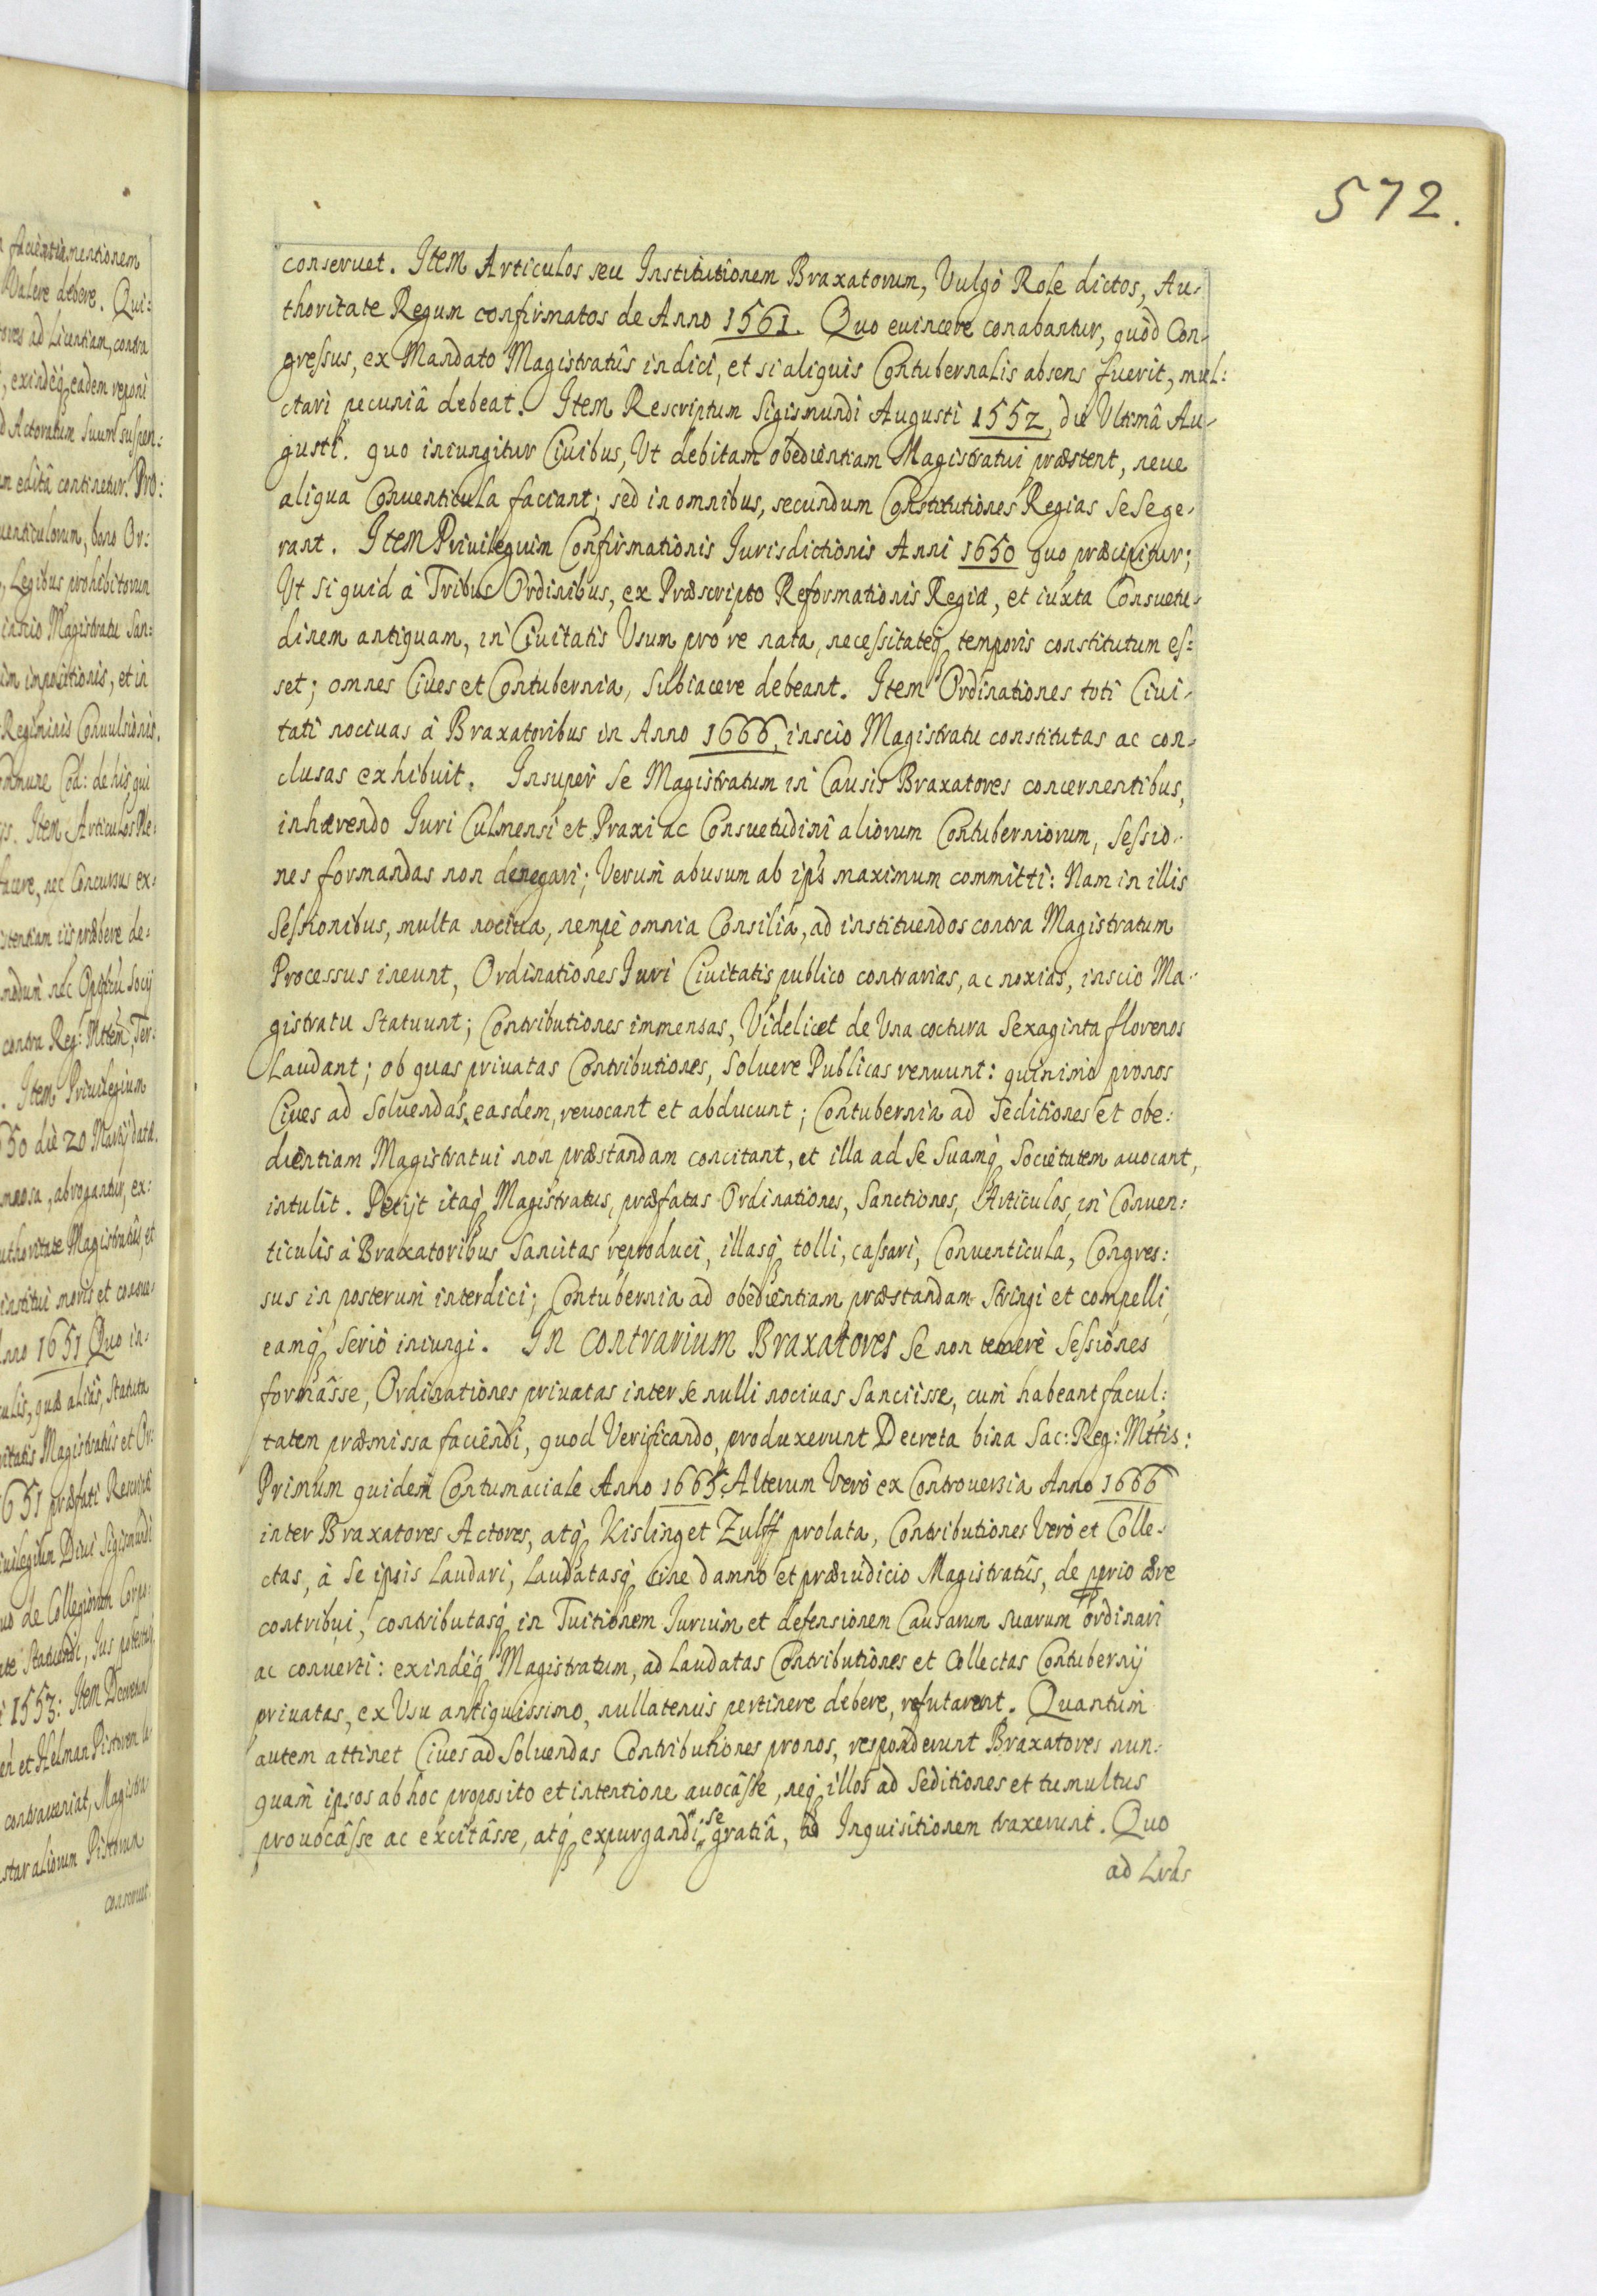 572.
conseruet. Item Articulos seu Institutionem Braxatorum, Vulgò Role dictos, Au-
thoritate Regum confirmatos de Anno 1561. Quo euincere conabantur, quòd Con-
gressus, ex Mandato Magistratûs indici, et si aliquis Contubernalis absens fuerit, mul:
ctari pecuniâ debeat. Item Rescriptum Sigismundi Augusti 1552, die Ultimâ Au-
gusti. quo iniungitur Ciuibus, Ut debitam obedientiam Magistratui præstent, neue
aliqua Conuenticula faciant; sed in omnibus, secundum Constitutiones Regias se se ge-
rant. Item Priuilegium Confirmationis Iurisdictionis Anni 1650 quo præcipitur;
Ut si quid à Tribus Ordinibus, ex Præscripto Reformationis Regiæ, et iuxta Consuetu-
dinem antiquam, in Ciuitatis Usum pro re nata, necessitateq temporis constitutum es=
set; omnes Ciues et Contubernia, subiacere debeant. Item Ordinationes toti Ciui-
tati nociuas à Braxatoribus in Anno 1666, inscio Magistratu constitutas ac con-
clusas exhibuit. Insuper se Magistratum in Causis Braxatores concernentibus,
inhærendo Iuri Culmensi et Praxi ac Consuetudini aliorum Contuberniorum, Sessio-
nes formandas non denegari; Verum abusum ab ip̃s maximum committi: Nam in illis
Sessionibus, multa nociua, nempe omnia Consilia, ad instituendos contra Magistratum
Processus ineunt, Ordinationes Iuri Ciuitatis publico contrarias, ac noxias, inscio Ma-
gistratu Statuunt; Contributiones immensas, Videlicet de Una coctura Sexaginta florenos
Laudant; ob quas priuatas Contributiones, Soluere Publicas renuunt: quinimò pronos
Ciues ad Soluendas easdem, reuocant et abducunt; Contubernia ad Seditiones et obe:
dientiam Magistratui non præstandam concitant, et illa ad se suamq̀ Societatem auocant,
intulit. Petijt itaq̀ Magistratus, præfatas Ordinationes, Sanctiones, Articulos, in Conuen:
ticulis à Braxatoribus Sancitas reproduci, illasq̀ tolli, cassari, Conuenticula, Congres:
sus in posterum interdici; Contubernia ad obedientiam præstandam Stringi et compelli,
eamq̀ Seriò iniungi. In contrarium Braxatores se non temerè Sessiones
formâsse, Ordinationes priuatas inter se nulli nociuas Sanciisse, cum habeant facul:
tatem præmissa faciendi, quod Verificando, produxerunt Decreta bina Sac: Reg: Mttis:
Primum quidem Contumaciale Anno 1665. Alterum Verò ex Controuersia Anno 1666
inter Braxatores Actores, atq̀ Kisling et Zulff prolata, Contributiones Verò et Colle-
ctas, à se ipsis Laudari, Laudatasq̀ sine damno et præiudicio Magistratûs, de pprio ære
contribui, contributasq̀ in Tuitionem Iurium et defensionem Causarum suarum ordinari
ac conuerti: exindéq̀ Magistratum, ad Laudatas Contributiones et Collectas Contubernij
priuatas, ex Usu antiquissimo, nullatenus pertinere debere, refutarunt. Quantum
autem attinet Ciues ad Soluendas Contributiones pronos, responderunt Braxatores nun-
quam ipsos ab hoc proposito et intentione auocâsse, neq̀ illos ad Seditiones et tumultus
prouocâsse ac excitâsse, atq̀ expurgandi se gratiâ, ad Inquisitionem traxerunt. Quo
ad Lrãs